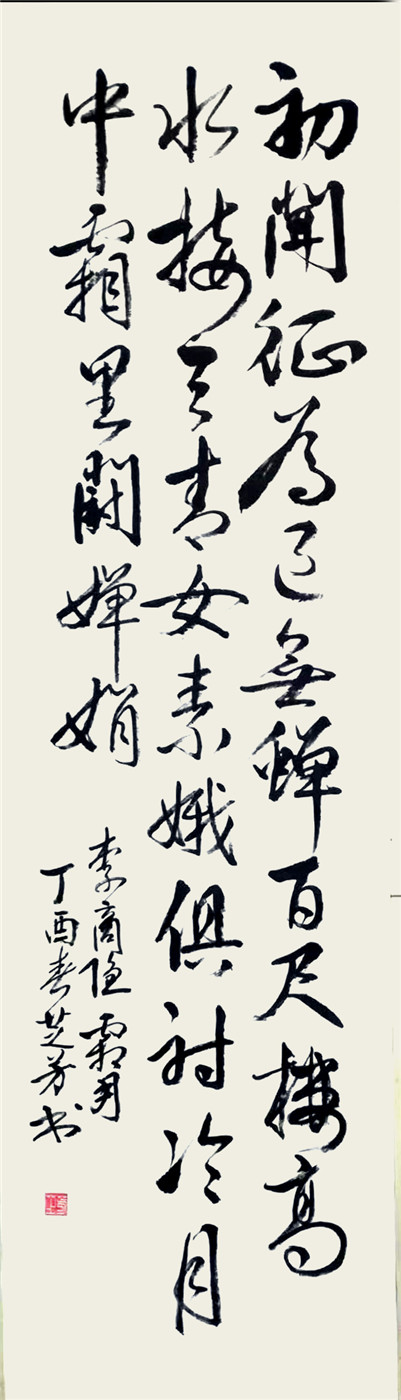 初聞征雁已無蝉百尺楼高
水接天青女素娥俱耐冷月
中霜里闘婵娟
李商隐霜月
丁酉春芝芳书